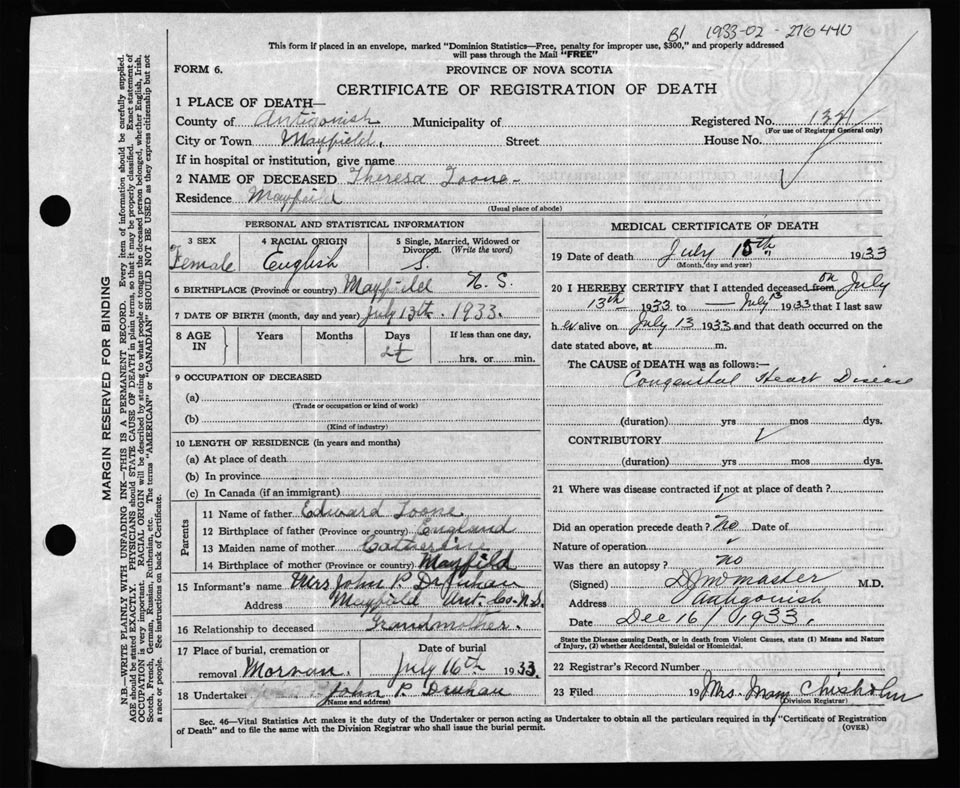 B1 1933-02-276440
This form if placed in an envelope, marked "Dominion Statistics—Free, penalty for improper use, $300," and properly addressed
will pass through the Mail "FREE"
FORM 6.
PROVINCE OF NOVA SCOTIA
CERTIFICATE OF REGISTRATION OF DEATH
1 PLACE OF DEATH—
County of Antigonish Municipality of Registered No. 1321
(For use of Registrar General only)
City or Town Mayfield, Street House No.
If in hospital or institution, give name
2 NAME OF DECEASED Theresa Toone
Residence Mayfield
(Usual place of abode)
PERSONAL AND STATISTICAL INFORMATION
3 SEX 4 RACIAL ORIGIN 5 Single, Married, Widowed or Divorced. (Write the word)
Female English S.
6 BIRTHPLACE (Province or country) Mayfield N. S.
7 DATE OF BIRTH (month, day and year) July 13th. 1933.
8 AGE IN Years Months Days If less than one day,
hrs. or min.
9 OCCUPATION OF DECEASED
(a)
(Trade or occupation or kind of work)
(b)
(Kind of industry)
10 LENGTH OF RESIDENCE (in years and months)
(a) At place of death
(b) In province
(c) In Canada (if an immigrant)
Parents
11 Name of father Edward Toone
12 Birthplace of father (Province or country) England
13 Maiden name of mother Catherine
14 Birthplace of mother (Province or country) Mayfield
15 Informant's name Mrs John P.
Address Mayfield Ant. Co. N.S.
16 Relationship to deceased Grandmother.
17 Place of burial, cremation or removal Date of burial
July 16th 1933.
18 Undertaker John P.
(Name and address)
MEDICAL CERTIFICATE OF DEATH
19 Date of death July 15th 1933
(Month, day and year)
20 I HEREBY CERTIFY that I attended deceased from on July
13th 1933 to — July 13 1933 that I last saw
her alive on July 13 1933 and that death occurred on the
date stated above, at m.
The CAUSE OF DEATH was as follows:—
Congenital Heart Disease
(duration) yrs mos dys.
CONTRIBUTORY
(duration) yrs. mos. dys.
21 Where was disease contracted if not at place of death?
Did an operation precede death? No Date of
Nature of operation
Was there an autopsy? No
(Signed) M.D.
Address Antigonish
Date Dec 16/1933.
State the Disease causing Death, or in death from Violent Causes, state (1) Means and Nature
of Injury, (2) whether Accidental, Suicidal or Homicidal.
22 Registrar's Record Number
23 Filed 19 Mrs. Mary Chisholm
(Division Registrar)
Sec. 46—Vital Statistics Act makes it the duty of the Undertaker or person acting as Undertaker to obtain all the particulars required in the "Certificate of Registration
of Death" and to file the same with the Division Registrar who shall issue the burial permit.
(OVER)
MARGIN RESERVED FOR BINDING
N.B.—WRITE PLAINLY WITH UNFADING INK—THIS IS A PERMANENT RECORD. Every item of information should be carefully supplied.
AGE should be stated EXACTLY. PHYSICIANS should STATE CAUSE OF DEATH in plain terms, so that it may be properly classified. Exact statement of
OCCUPATION is very important. RACIAL ORIGIN will be described by stating to what people or tongue the deceased person belonged, whether English, Irish,
Scotch, French, German, Russian, Ruthenian, etc. The terms "AMERICAN" or "CANADIAN" SHOULD NOT BE USED as they express citizenship but not
a race or people. See instructions on back of Certificate.